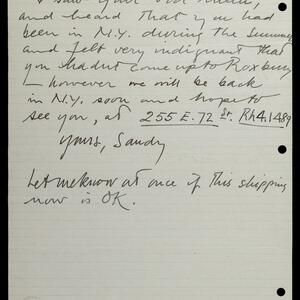 and heard that you had
been in N.Y. during the summer
and felt very indignant that
you hadnt come up to Roxbury
— however we will be back
in N.Y. soon and hope to
see you, at 255 E. 72 St. Rh4.1489
Yours, Sandy
Let me know at once if this shipping
now is OK.